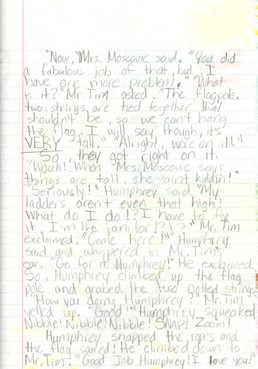 "Now," Mrs. Moscowe said. "You did
a fabulous job of that, but I
have one more problem." "What
is it?" Mr. Tim asked. "The flagpole
two strings are tied together, they
shouldn't be, so we can't hang
the flag. I will say though, its
VERY tall." "Alright, we're on it!"
So, they got right on it.
"Woah! When Mrs. Moscowe says
things are tall she ain't kiddin!"
"Seriously!" Humphrey said, "My
ladders aren't even that high!
What do I do!? I have to fix
it, I'm the janitor!?!?" Mr. Tim
exclaimed. "Come here!" Humphrey
said and whispered in Mr. Tim's
ear. "Go for it Humphrey!" He exclaimed.
So, Humphrey climbed up the flag
pole and grabed the two strings.
"How you doing Humphrey?" Mr. Tim
yelled up. "Good!" Humphrey squeaked.
Nibble! Nibble! Nibble! SNAP! Zoom!
Humphrey snapped the ropes and
the flag soared! He climbed down to
Mr. Tim. "Good Job Humphrey! I love you!"